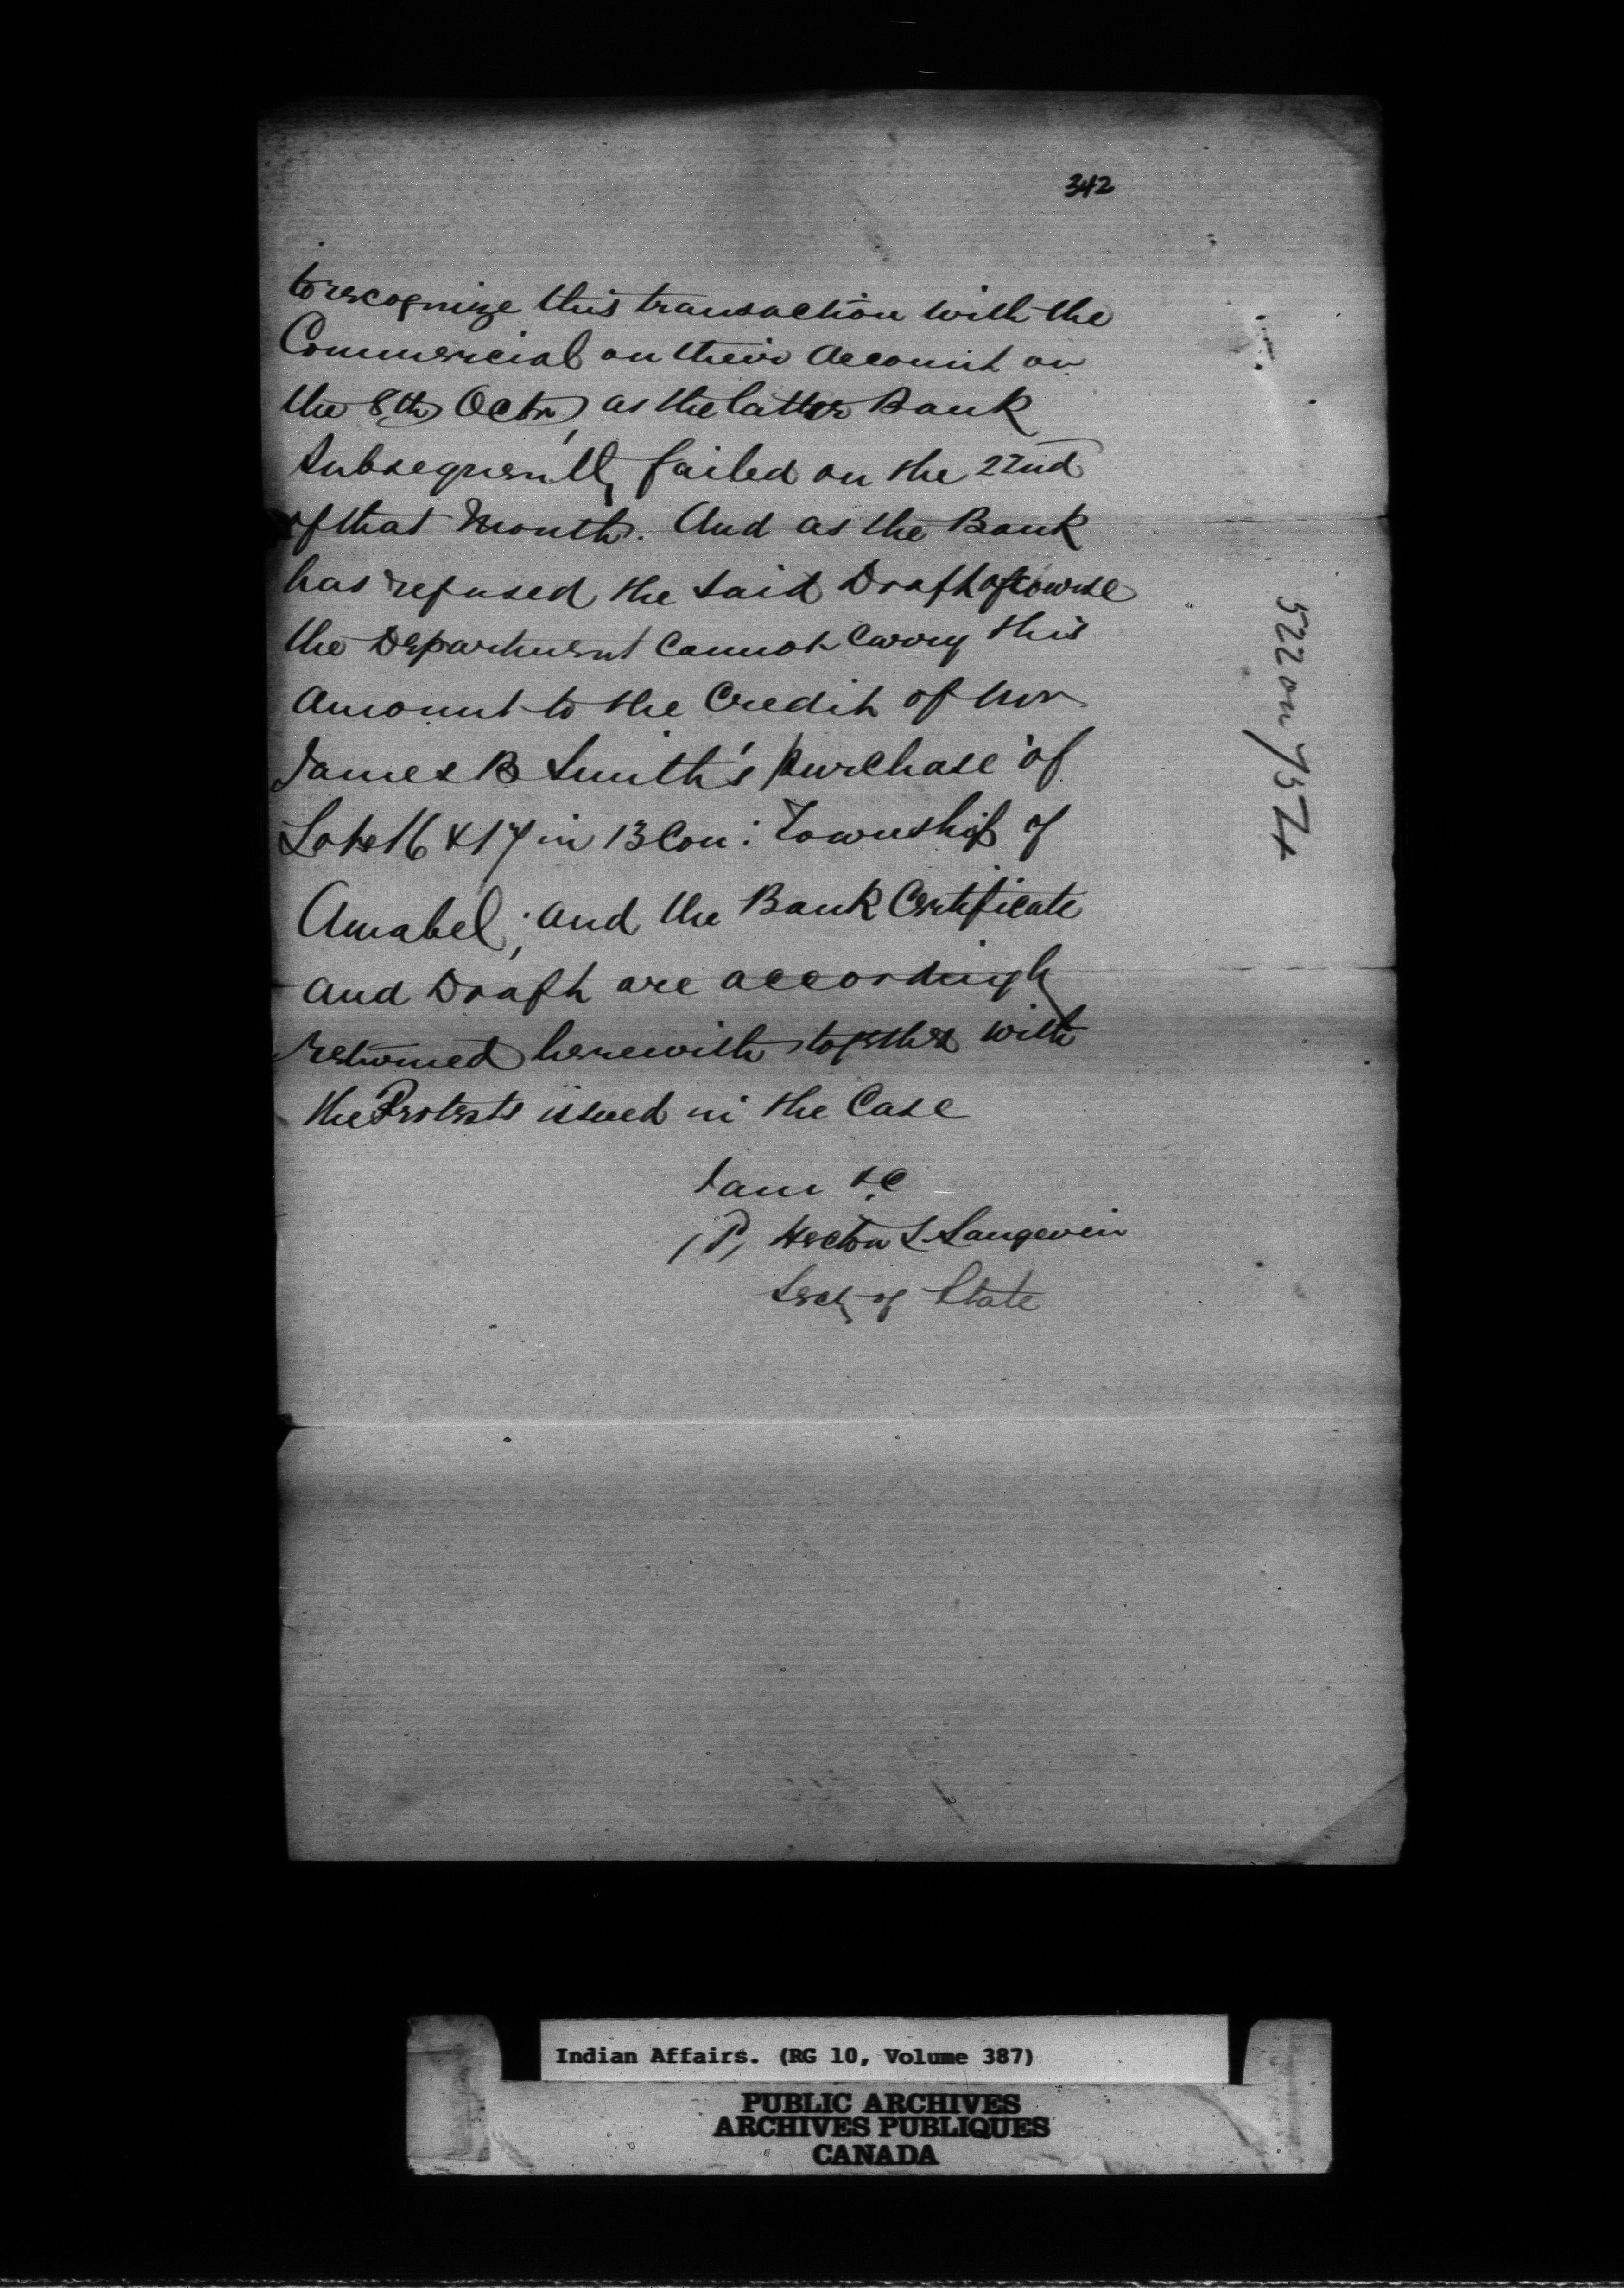 342
to recognize this transaction with the
Commercial on their Account on
the 8th Octr, as the latter Bank
Subsequently failed on the 22nd
of that Month. And as the Bank
has refused the said Draft of course
the Department Cannot Carry this
Amount to the Credit of Mr
James B Smith's purchase of
Lots 16 & 17 in 13 Con: Township of
Amabel; and the Bank Certificate
and Draft are accordingly
returned herewith together with
the Protests issued in the Case
I am &c
Hector L Langevin
Secy of State
522 on 7374
Indian Affairs. (RG 10, Volume 387)
PUBLIC ARCHIVES
ARCHIVES PUBLIQUES
CANADA